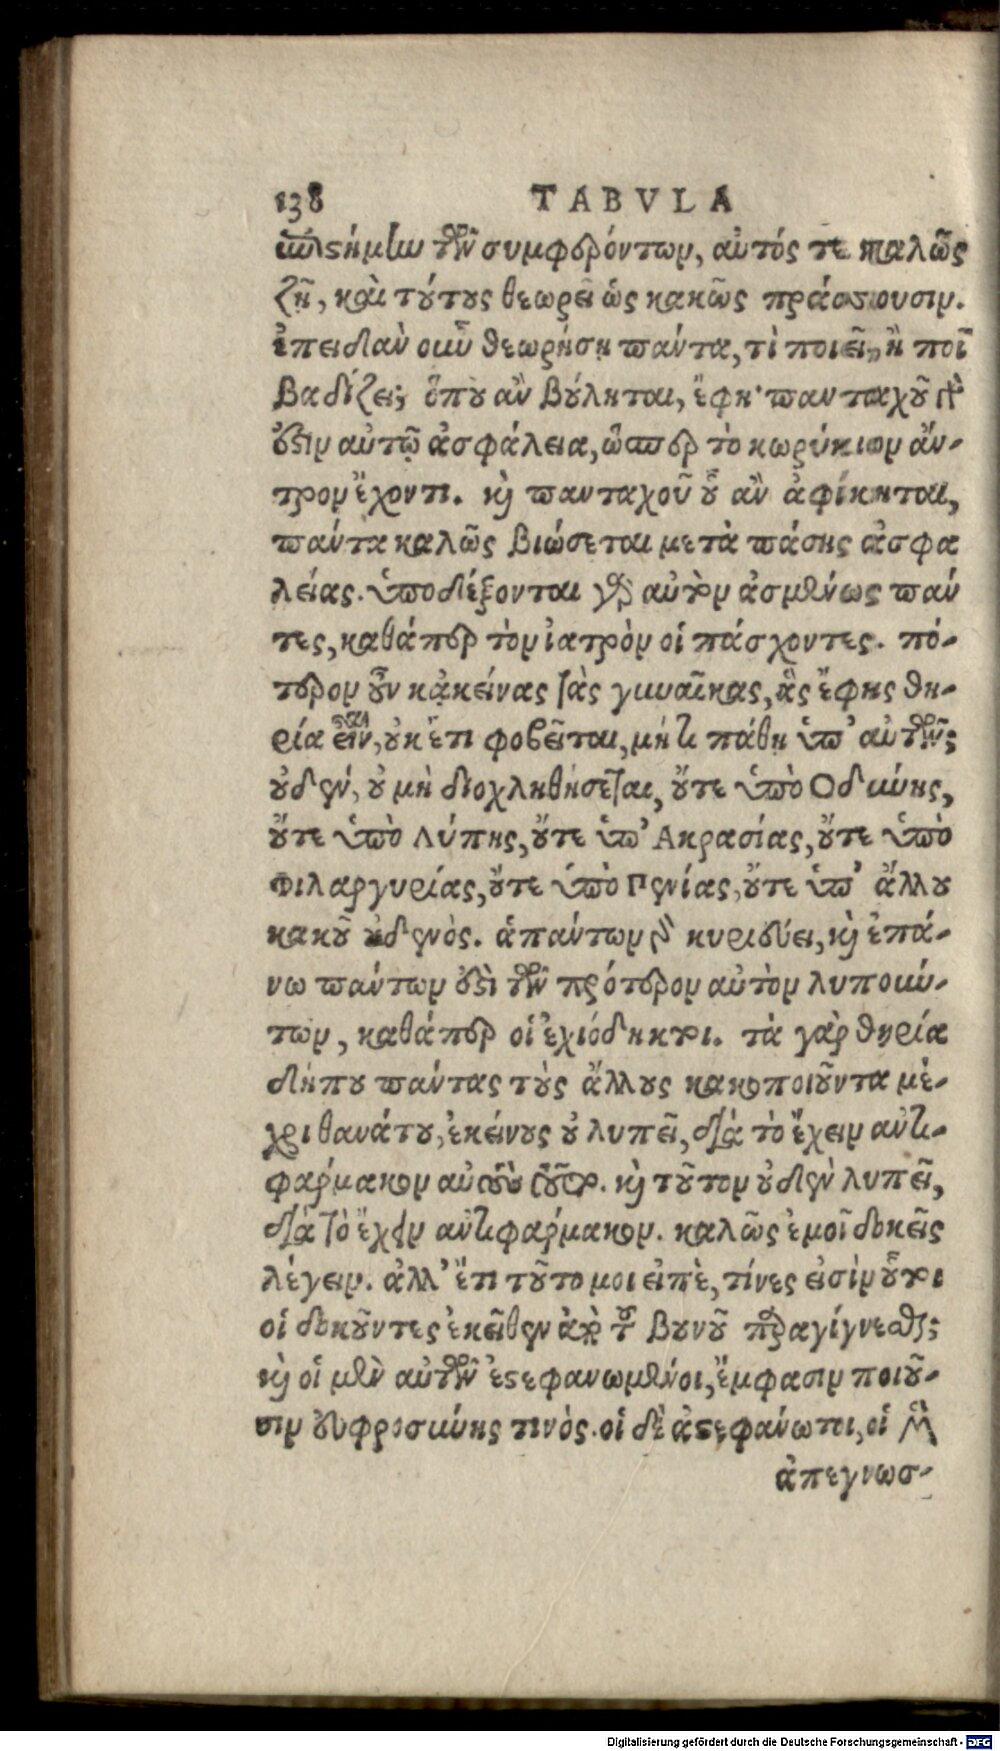 138 TABVLA
ἐπιστήμην τῶν συμφερόντων, αὐτός τε καλῶς
ζῆ, καὶ τούτους θεωρεῖ ὡς κακῶς πράσσουσιν.
ἐπειδὰν οὖν θεωρήσῃ πάντα, τὶ ποιεῖ, ἢ ποῖ
βαδίζει; ὅπου ἂν βούληται, ἔφη· πανταχοῦ γάρ
ἐστιν αὐτῷ ἀσφάλεια, ὥσπερ τὸ κωρύκιον ἄν-
τρον ἔχοντι. καὶ πανταχοῦ οὗ ἂν ἀφίκηται,
πάντα καλῶς βιώσεται μετὰ πάσης ἀσφα
λείας. ὑποδέξονται γὰρ αὐτὸν ἀσμένως πάν
τες, καθάπερ τὸν ἰατρὸν οἱ πάσχοντες. πό-
τερον οὖν κἀκείνας τὰς γυναῖκας, ἃς ἔφης θη-
ρία εἶναι, οὐκ ἔτι φοβεῖται, μή τι πάθῃ ὑπ' αὐτῶν;
οὐδέν, οὐ μὴ διοχληθήσεται, οὔτε ὑπὸ Οδύνης,
οὔτε ὑπὸ Λύπης, οὔτε ὑπ' Ακρασίας, οὔτε ὑπὸ
Φιλαργυρίας, οὔτε ὑπὸ Πενίας, οὔτε ὑπ' ἄλλου
κακοῦ οὐδενὸς. ἁπάντων γὰρ κυριεύει, καὶ ἐπά-
νω πάντων ἐστὶ τῶν πρότερον αὐτὸν λυπούν-
των, καθάπερ οἱ ἐχιόδηκτοι. τὰ γὰρ θηρία
δήπου πάντας τοὺς ἄλλους κακοποιοῦντα μέ-
χρι θανάτου, ἐκείνους οὐ λυπεῖ, διὰ τὸ ἔχειν ἀντι-
φάρμακον αὐτοὺς τούτων. καὶ τοῦτον οὐδὲν λυπεῖ,
διὰ τὸ ἔχειν ἀντιφάρμακον. καλῶς ἐμοῖ δοκεῖς
λέγειν. ἀλλ' ἔτι τοῦτο μοι εἰπὲ, τίνες εἰσὶν οὗτοι
οἱ δοκοῦντες ἐκεῖθεν ἀπὸ τοῦ βουνοῦ παραγίγνεσθαι;
καὶ οἱ μὲν αὐτῶν ἐστεφανωμένοι, ἔμφασιν ποιοῦ-
σιν εὐφροσύνης τινὸς. οἱ δὲ ἀστεφάνωτοι, οἱ μὲν
ἀπεγνωσ-
Digitalisierung gefördert durch die Deutsche Forschungsgemeinschaft - DFG